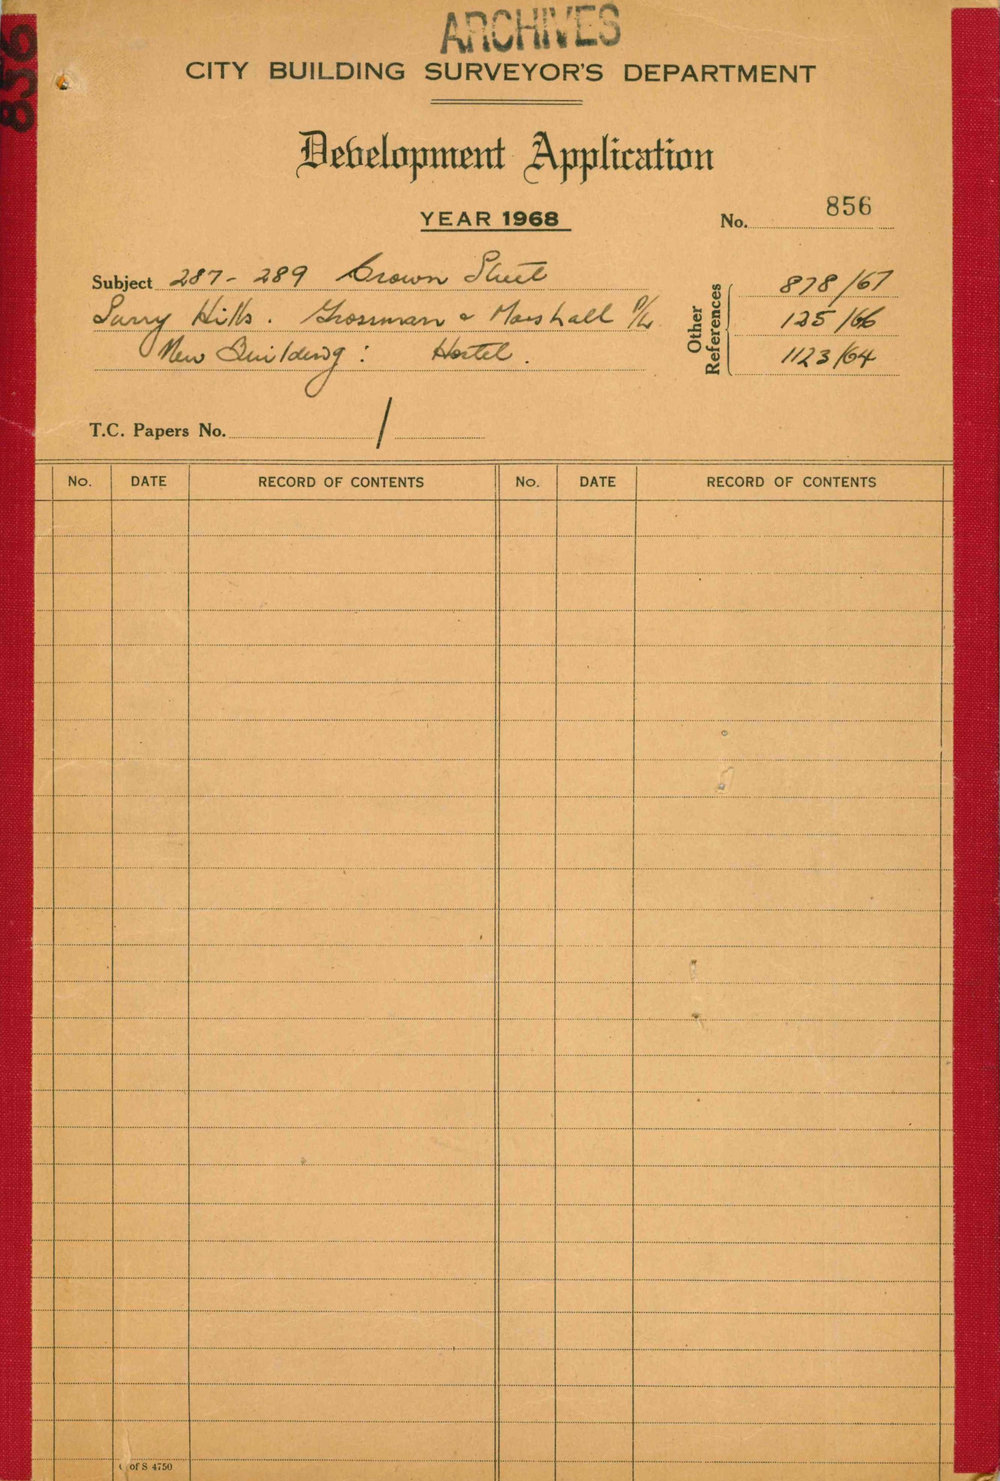 ARCHIVES
856
CITY BUILDING SURVEYOR'S DEPARTMENT
Development Application
YEAR 1968
No. 856
Subject 287 - 289 Crown Street
Surry Hills. Grossman & Marshall P/L
New Building: Hostel.
Other References
878/67
125/66
1123/64
T.C. Papers No. /
No. DATE RECORD OF CONTENTS No. DATE RECORD OF CONTENTS
C of S 4750